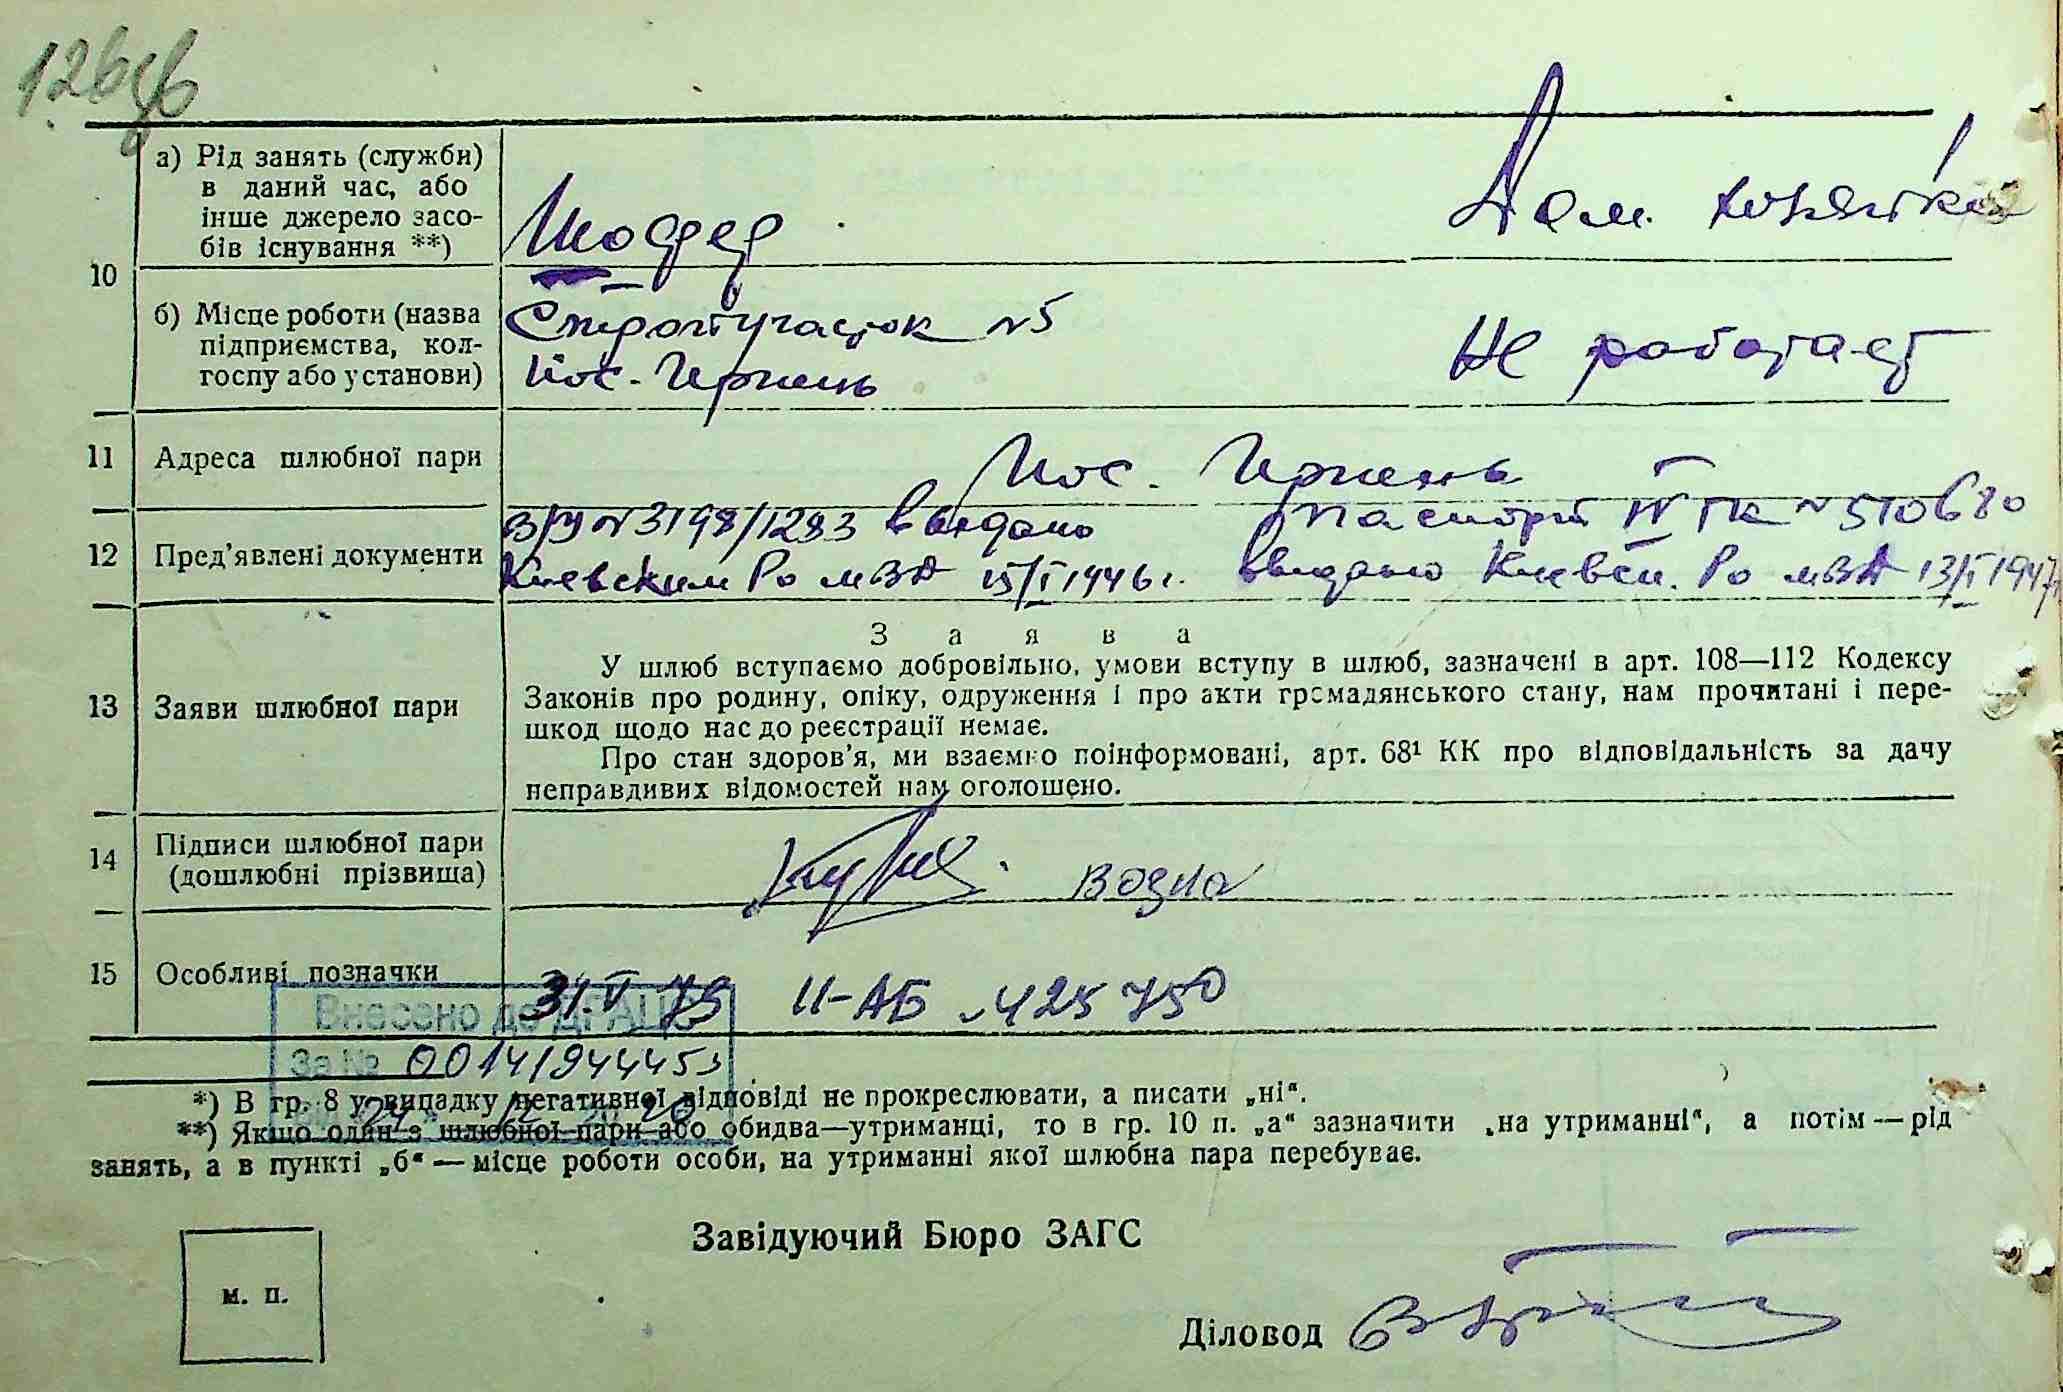 126
10
а) Рід занять (служби)
в даний час, або
інше джерело засо-
бів існування **)
Шофер
Дом. хозяйка
б) Місце роботи (назва
підприємства, кол-
госпу або установи)
Стройучасток №5
пос. Ирпень
Не работает
11 Адреса шлюбної пари
пос. Ирпень
12 Пред'явлені документи
в/у № 3198/1283 выдано
Киевским Ро МВД 15/I 1946 г.
паспорт IV ПК № 510680
выдано Киевск. Ро МВД 13/I 1947
13 Заяви шлюбної пари
Заява
У шлюб вступаємо добровільно, умови вступу в шлюб, зазначені в арт. 108—112 Кодексу
Законів про родину, опіку, одруження і про акти громадянського стану, нам прочитані і пере-
шкод щодо нас до реєстрації немає.
Про стан здоров'я, ми взаємно поінформовані, арт. 68¹ КК про відповідальність за дачу
неправдивих відомостей нам оголошено.
14 Підписи шлюбної пари
(дошлюбні прізвища)
Возна
15 Особливі позначки
31.V 75 II-АБ № 425750
Внесено до ДРАЦС
За № 00141944453
*) В гр. 8 у випадку негативної відповіді не прокреслювати, а писати „ні“.
**) Якщо один з шлюбної пари або обидва—утриманці, то в гр. 10 п. „а“ зазначити „на утриманні“, а потім — рід
занять, а в пункті „б“ — місце роботи особи, на утриманні якої шлюбна пара перебуває.
Завідуючий Бюро ЗАГС
м. п.
Діловод